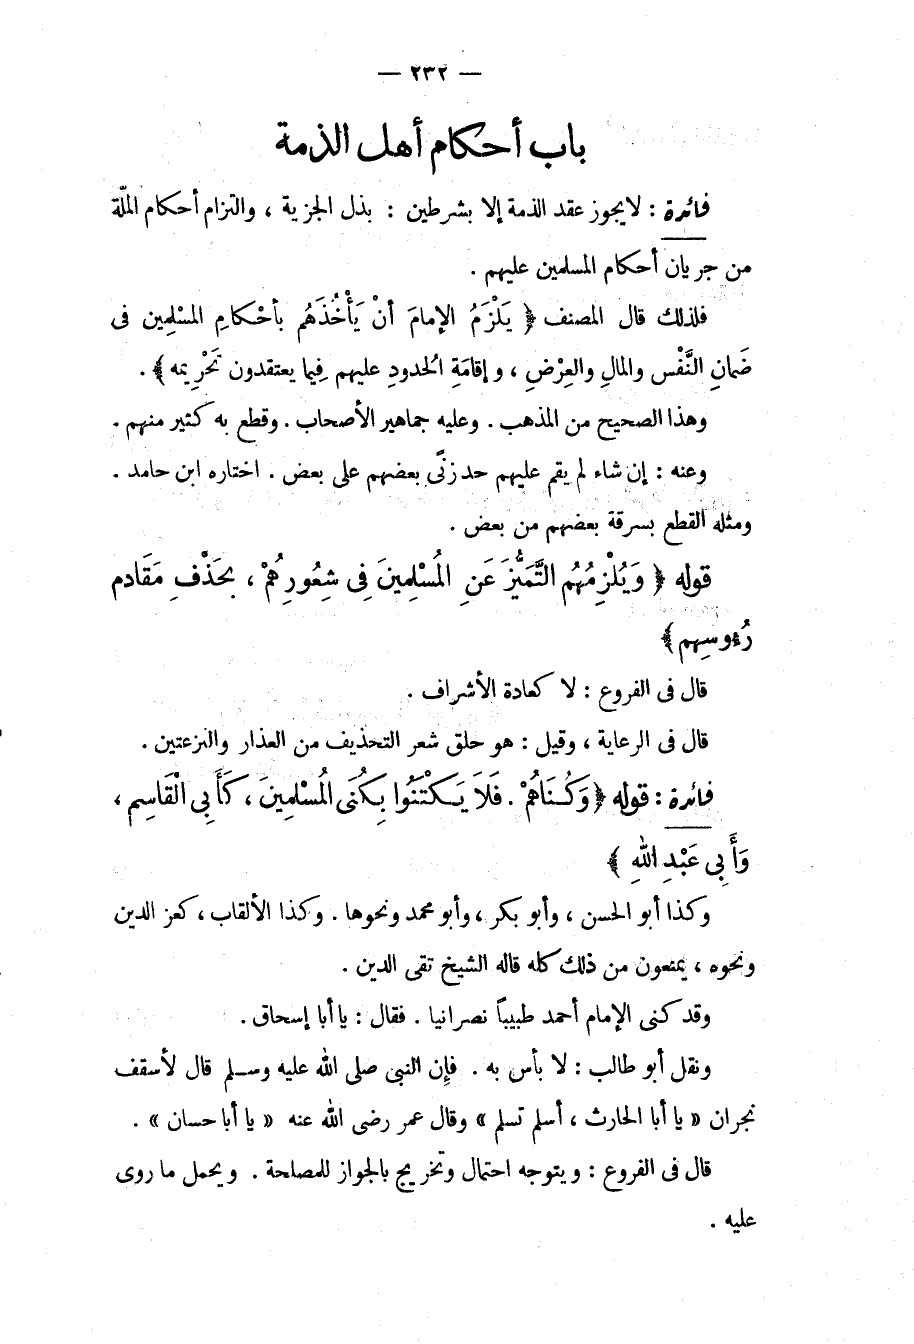 — ٢٣٢ —
باب أحكام أهل الذمة
فائدة : لايجوز عقد الذمة إلا بشرطين : بذل الجزية ، والتزام أحكام الملّة
من جريان أحكام المسلمين عليهم .
فلذلك قال المصنف ﴿ يَلْزَمُ الإمامَ أنْ يَأْخُذَهُم بأحْكامِ المسْلمِين فى
ضَمانِ النَّفْس والمالِ والعِرْضِ ، وإقامَةِ الْحدودِ عليهم فِيما يعتقدون تَحْرِيمه ﴾ .
وهذا الصحيح من المذهب . وعليه جماهير الأصحاب . وقطع به كثير منهم .
وعنه : إن شاء لم يقم عليهم حد زنًى بعضهم على بعض . اختاره ابن حامد .
ومثله القطع بسرقة بعضهم من بعض .
قوله ﴿ وَيُلْزِمُهُم التَّمَيُّزَ عَنِ الْمُسْلِمِينَ فِى شِعُورِهُمْ ، بحَذْفِ مَقَادِم
رُءوسِهِم ﴾
قال فى الفروع : لا كعادة الأشراف .
قال فى الرعاية ، وقيل : هو حلق شعر التحذيف من العذار والنزعتين .
فائدة : قوله ﴿ وَكُنَاهُمْ . فَلاَ يَكْتَنُوا بِكُنَى الْمُسْلِمِينَ ، كَأَبِى الْقَاسِمِ ،
وَأَبِى عَبْدِ اللهِ ﴾
وكذا أبو الحسن ، وأبو بكر ، وأبو محمد ونحوها . وكذا الألقاب ، كعز الدين
ونحوه ، يمنعون من ذلك كله قاله الشيخ تقى الدين .
وقد كنى الإمام أحمد طبيباً نصرانيا . فقال : يا أبا إسحاق .
ونقل أبو طالب : لا بأس به . فإن النبى صلى الله عليه وسلم قال لأسقف
نجران « يا أبا الحارث ، أسلم تسلم » وقال عمر رضى الله عنه « يا أبا حسان » .
قال فى الفروع : ويتوجه احتمال وتخريج بالجواز للمصلحة . ويحمل ما روى
عليه .